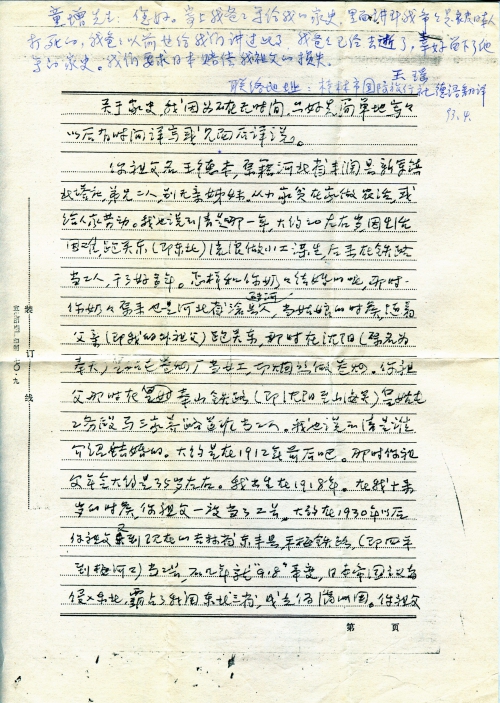 童增先生：您好。当上我爸爸写给我的家史，里面讲到我爷爷是被日本人
打死的，我爸爸以前也给我们讲过此事，我爸爸已经去逝了，幸好留下了他
写的家史。我们要求日本赔偿我祖父的损失。
王
联络地址：桂林市国际旅行社德语翻译
93.4.
关于家史，我因为不在无时间，只好先简单地写写
以后有时间详写或见面后详说。
你祖父名王德，原籍河北省丰润县新军
弟兄二人，别无亲姊妹。从小家贫在家做农活，或
给人家劳动。我也说不清是那一年，大约20左右岁因生活
困难跑关东（即东北）后做小工谋生，后来在铁路
当工人，干了好多年。怎样和你奶奶结婚的呢，那时
你奶奶原来也是河北省滦县人，当姑娘的时候，随着
父亲（即我的外祖父）跑关东，那时在沈阳（原名为
奉天）卷烟厂当女工，即烟丝做卷烟。你祖
父那时在奉山铁路（即沈阳至山海关）皇姑屯
工务段马三家养路当工人。我也说不清是谁
介绍结婚的。大约是在1912年前后吧。那时你祖
父年令大约是35岁左右。我出生在1918年。在我十来
岁的时候，你祖父一波当了工头。大约在1930年以后
你祖父又到现在的吉林省东丰县，平梅铁路，（即四平
到梅河口）当工头，不几年就"9.8"事变，日本帝国主义者
侵入东北，霸占了我国东北三省，成立伪满州国。你祖父
第 页
装订线